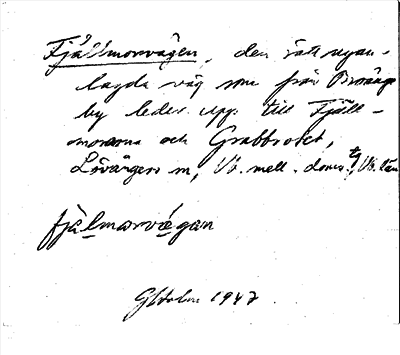 Fjällmorvägen, den rätt nyan-
lagda väg som från Broänge
by leder upp till Fjäll-
morarna och Grabbrotet,
Lövångers sn, Vb. mell. doms. tg, Vb. län
fjälmorvägan
GHolm 1947.